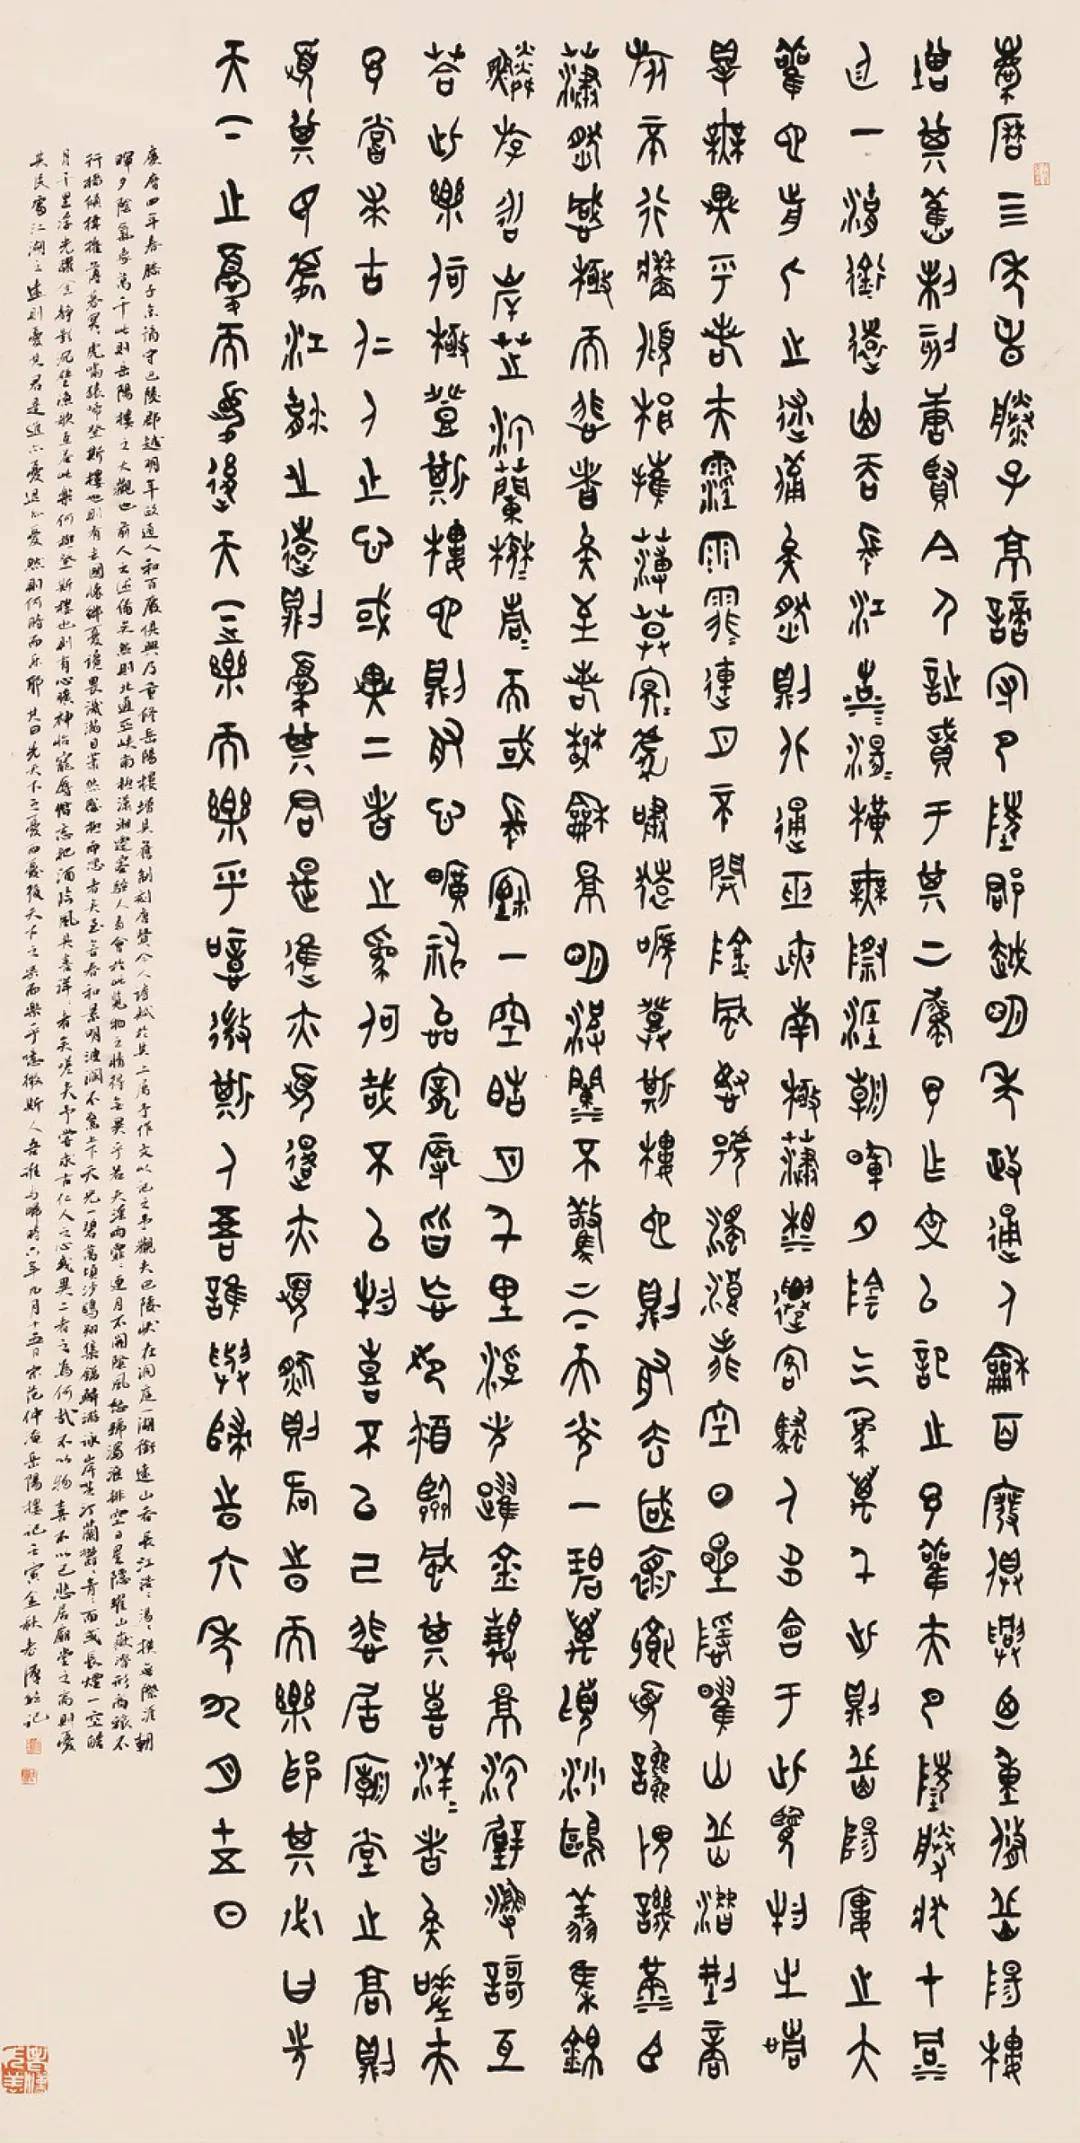 慶曆四年春滕子京謫守巴陵郡越明年政通人和百廢俱興乃重修岳陽樓
增其舊制刻唐賢今人詩賦于其上屬予作文以記之予觀夫巴陵勝狀在洞
庭一湖銜遠山吞長江浩〻湯〻橫無際涯朝暉夕陰氣象萬千此則岳陽樓之大
觀也前人之述備矣然則北通巫峽南極瀟湘遷客騷人多會于此覽物之情
得無異乎若夫霪雨霏〻連月不開陰風怒號濁浪排空日星隱曜山岳潛形商
旅不行檣傾楫摧薄暮冥〻虎嘯猿啼登斯樓也則有去國懷鄉憂讒畏譏滿目
蕭然感極而悲者矣至若春和景明波瀾不驚上下天光一碧萬頃沙鷗翔集錦
鱗游泳岸芷汀蘭郁〻青〻而或長煙一空皓月千里浮光躍金靜影沉璧漁歌互
答此樂何極登斯樓也則有心曠神怡寵辱皆忘把酒臨風其喜洋〻者矣嗟夫
予嘗求古仁人之心或異二者之為何哉不以物喜不以己悲居廟堂之高則
憂其民處江湖之遠則憂其君是進亦憂退亦憂然則何時而樂耶其必曰先
天下之憂而憂後天下之樂而樂乎噫微斯人吾誰與歸時六年九月十五日
慶曆四年春滕子京謫守巴陵郡越明年政通人和百廢俱興乃重修岳陽樓增其舊制刻唐賢今人詩賦於其上屬予作文以記之予觀夫巴陵勝狀在洞庭一湖銜遠山吞長江浩〻湯〻橫無際涯朝
暉夕陰氣象萬千此則岳陽樓之大觀也前人之述備矣然則北通巫峽南極瀟湘遷客騷人多會於此覽物之情得無異乎若夫淫雨霏〻連月不開陰風怒號濁浪排空日星隱耀山嶽潛形商旅不
行檣傾楫摧薄暮冥〻虎嘯猿啼登斯樓也則有去國懷鄉憂讒畏譏滿目蕭然感極而悲者矣至若春和景明波瀾不驚上下天光一碧萬頃沙鷗翔集錦鱗游泳岸芷汀蘭郁〻青〻而或長煙一空皓
月千里浮光躍金靜影沉璧漁歌互答此樂何極登斯樓也則有心曠神怡寵辱偕忘把酒臨風其喜洋〻者矣嗟夫予嘗求古仁人之心或異二者之為何哉不以物喜不以己悲居廟堂之高則憂
其民處江湖之遠則憂其君是進亦憂退亦憂然則何時而樂耶其曰先天下之憂而憂後天下之樂而樂乎噫微斯人吾誰與歸時六年九月十五日宋范仲淹岳陽樓記壬寅金秋